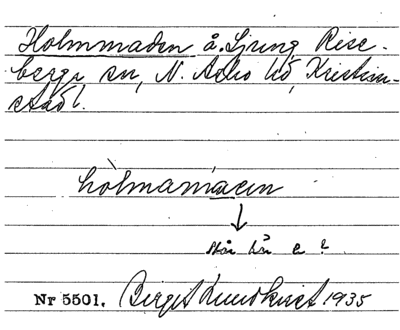 Holmmaden å. Ljung, Rise-
berga sn, N. Åsbo hd, Kristian-
stads l.
hòlmamaen
står här a ?
Nr 5501. Birgit Lundkvist 1935